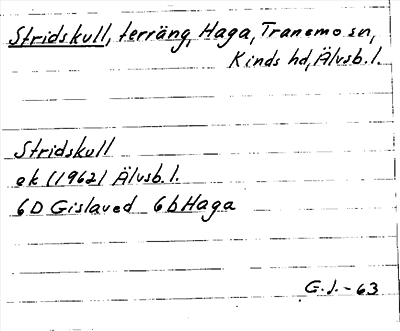 Stridskull, terräng, Haga, Tranemo sn,
Kinds hd, Älvsb. l.
Stridskull
ek (1962) Älvsb. l.
6D Gislaved 6b Haga
G.J.-63